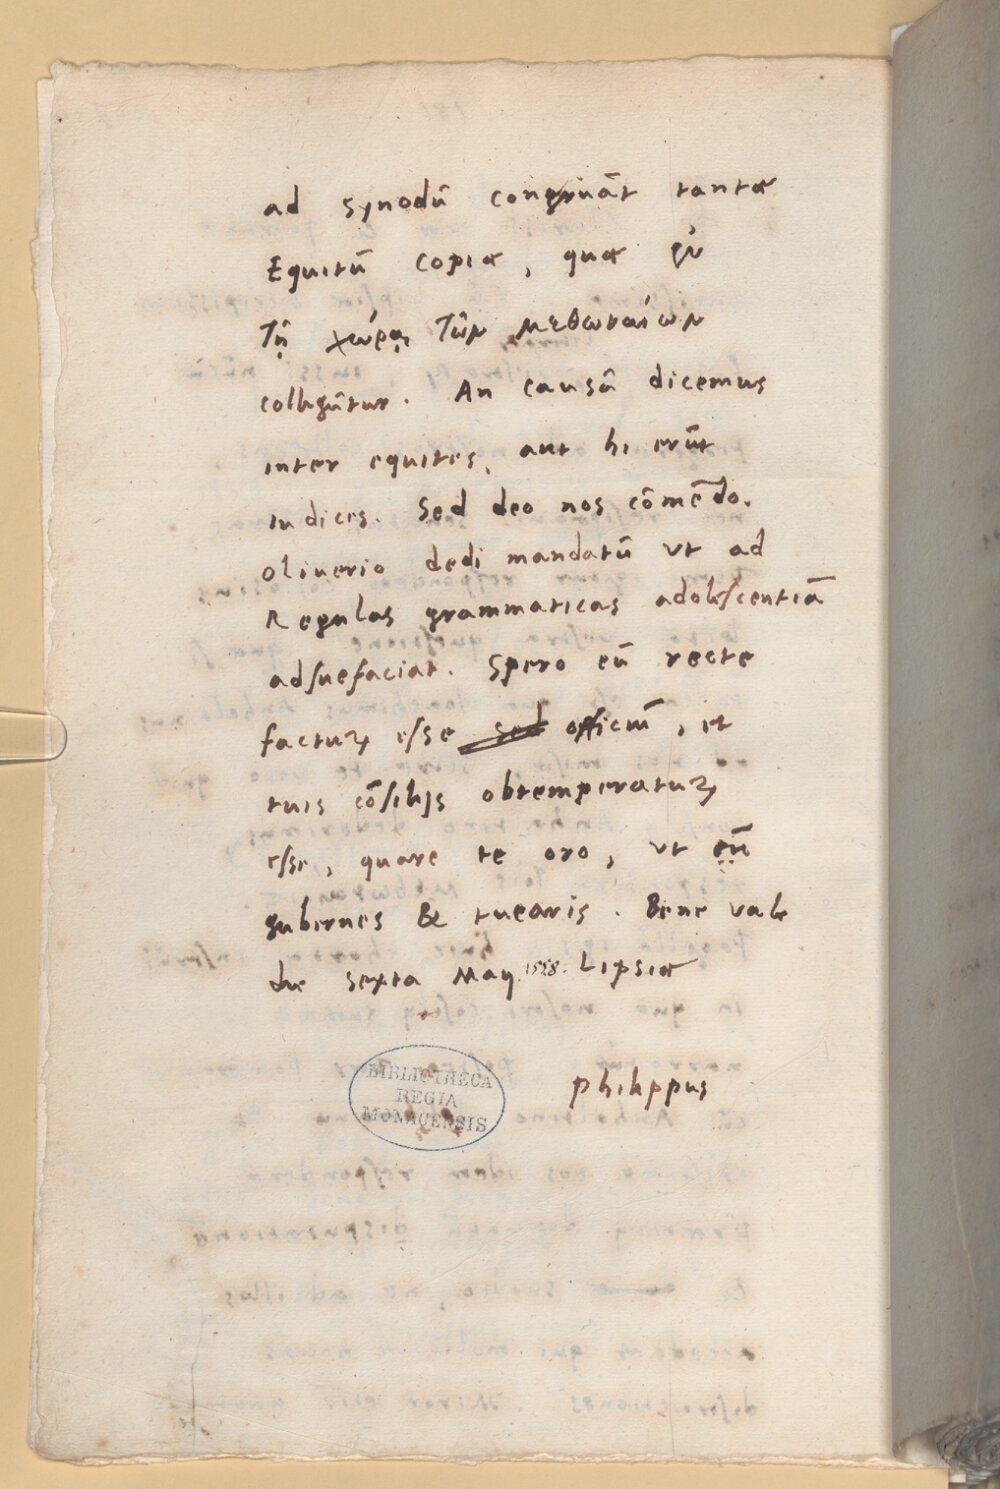 ad synodũ congruãt tantæ
Equitũ copiæ, quæ ἐν
τῇ χώρᾳ τῶν μεθωναίων
colligũtur. An causã dicemus
inter equites, aut hi erũt
iudices. Sed deo nos cõmẽdo.
Oliuerio dedi mandatũ vt ad
Regulas grammaticas adolescentiã
adsuefaciat. Spero eũ recte
facturꝝ esse sed officiũ, et
tuis cõsilijs obtemperaturꝝ
esse, quare te oro, vt eũ
gubernes & tuearis. Bene vale
die sexta Maij 1558. Lipsiæ
philippus
BIBLIOTHECA
REGIA
MONACENSIS